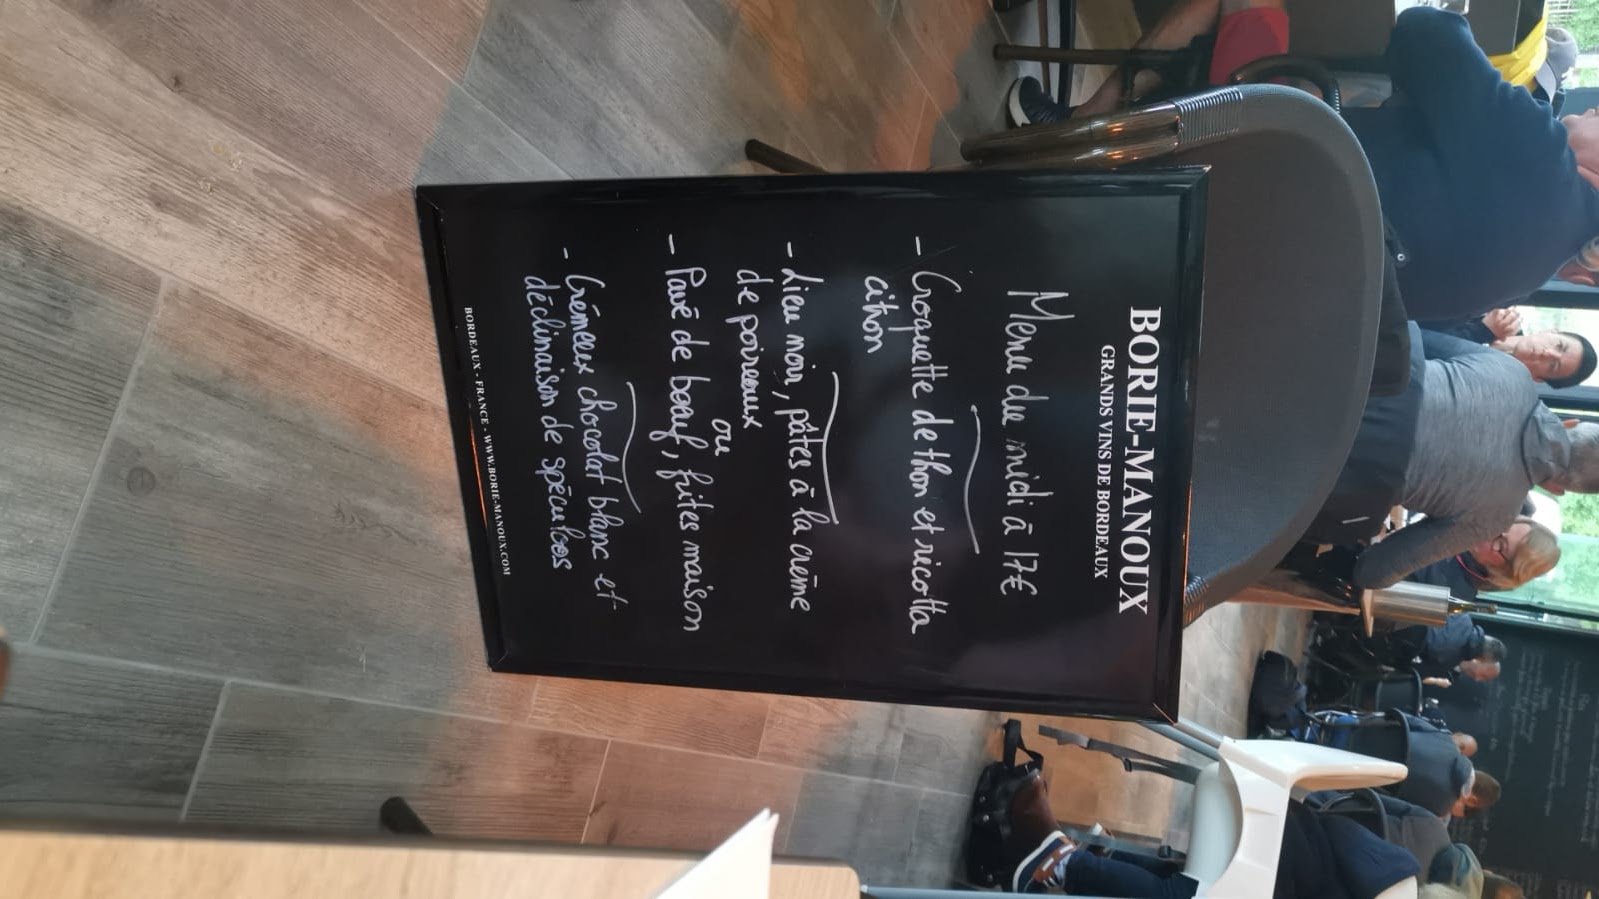 BORIE-MANOUX
GRANDS VINS DE BORDEAUX
Menu du midi à 17€
- Croquette de thon et ricotta
citron
- Lieu noir, pâtes à la crème
de poireaux
ou
- Pavé de bœuf, frites maison
- Crémeux chocolat blanc et
déclinaison de spéculoos
BORDEAUX - FRANCE - WWW.BORIE-MANOUX.COM